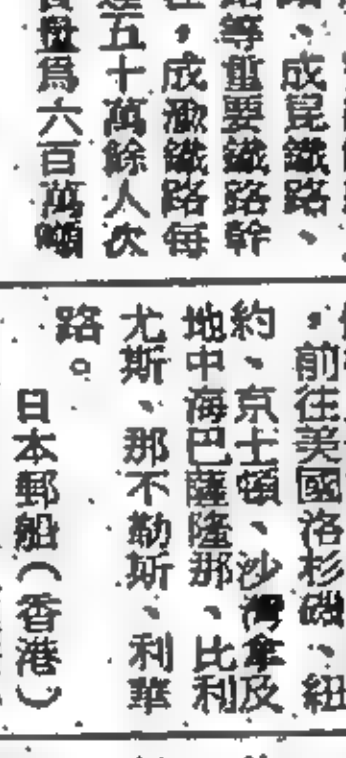 、成昆鐵路、
路等重要鐵路幹
，成渝鐵路每
五十萬餘人次
量爲六百萬噸
，前往美國洛杉磯、紐
約、京士頓、沙灣拿及
地中海巴薩隆那、比利
尤斯、那不勒斯、利華
路。
日本郵船（香港）